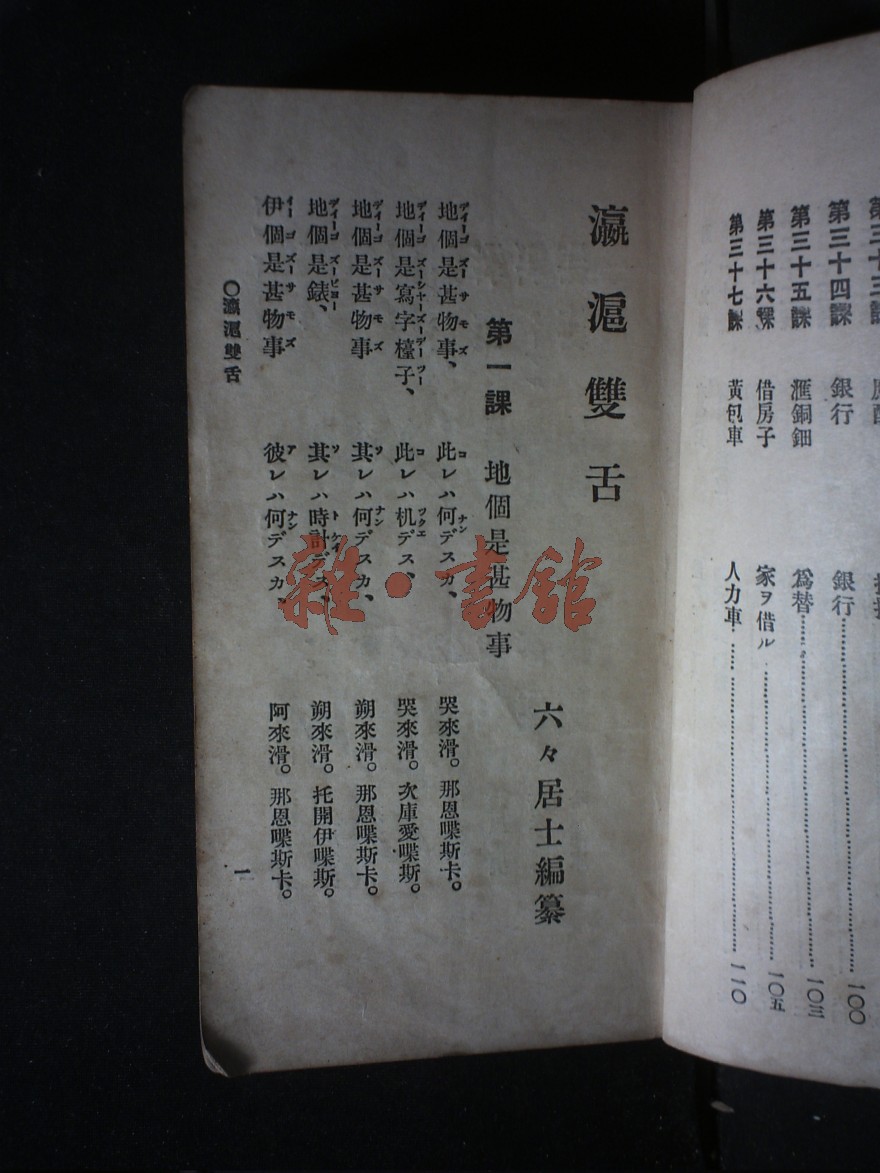 第三十四課 銀行 銀行 一〇〇
第三十五課 滙銅鈿 爲替 一〇三
第三十六課 借房子 家ヲ借ル 一〇五
第三十七課 黃包車 人力車 一一〇
瀛滬雙舌
六々居士編纂
第一課 地個是甚物事
地個是甚物事、 此レハ何デスカ、 哭來滑。那恩喋斯卡。
地個是寫字檯子、 此レハ机デス、 哭來滑。次庫愛喋斯。
地個是甚物事 其レハ何デスカ、 朔來滑。那恩喋斯卡。
地個是錶、 其レハ時計デス、 朔來滑。托開伊喋斯。
伊個是甚物事 彼レハ何デスカ、 阿來滑。那恩喋斯卡。
〇瀛滬雙舌
一
雜·書館